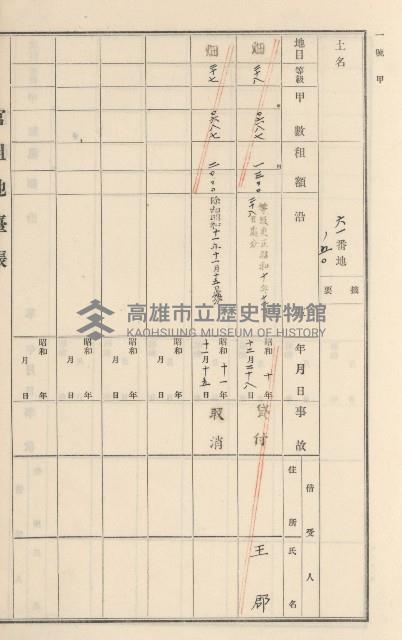 一號甲
土名
六一番地
ノ五〇
摘要
地目
等級
甲數
租額
沿
年月日
事故
借受人
住所
氏名
畑
二十八
〇六八七
一三〇〇
等級更正昭和十年十
二十八日處分
昭和十年
十二月二十八日
貸付
王郡
畑
二十七
〇六八七
二〇〇〇
除租昭和十一年十一月十五日處分
昭和十一年
十一月十五日
取消
昭和 年
月 日
昭和 年
月 日
昭和 年
月 日
昭和 年
月 日
官租地臺帳
高雄市立歷史博物館
KAOHSIUNG MUSEUM OF HISTORY